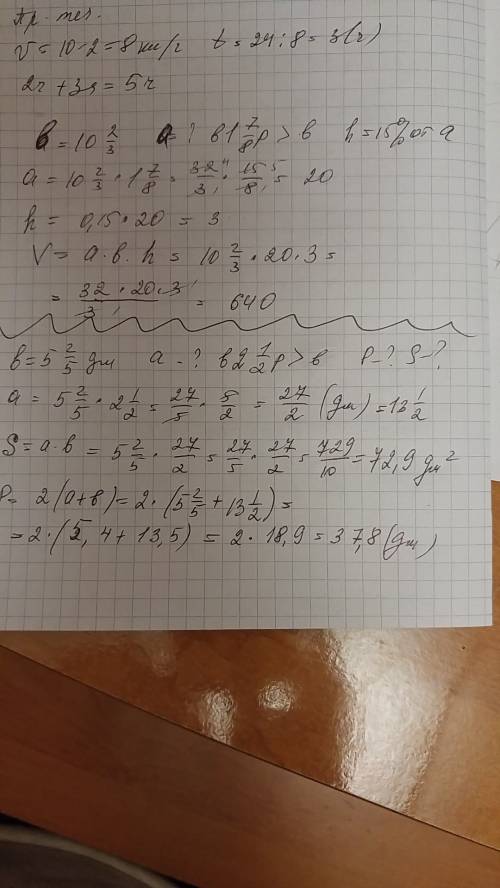 Пр. теч.
V = 10-2 = 8 км/ч t = 24:8 = 3(ч)
2ч + 3ч = 5ч
в = 10 2/3 а = ? в 1 7/8 р > в h = 15% от а
а = 10 2/3 · 1 7/8 = 32/3 · 15/8 = 20
h = 0,15 · 20 = 3
V = а · в · h = 10 2/3 · 20 · 3 =
= 32 · 20 · 3/3 = 640
в = 5 2/5 дм а - ? в 2 1/2 р > в P - ? S - ?
а = 5 2/5 · 2 1/2 = 27/5 · 5/2 = 27/2 (дм) = 13 1/2
S = а · в = 5 2/5 · 27/2 = 27/5 · 27/2 = 729/10 = 72,9 дм²
P = 2(а+в) = 2 · (5 2/5 + 13 1/2) =
= 2 · (5,4 + 13,5) = 2 · 18,9 = 37,8 (дм)